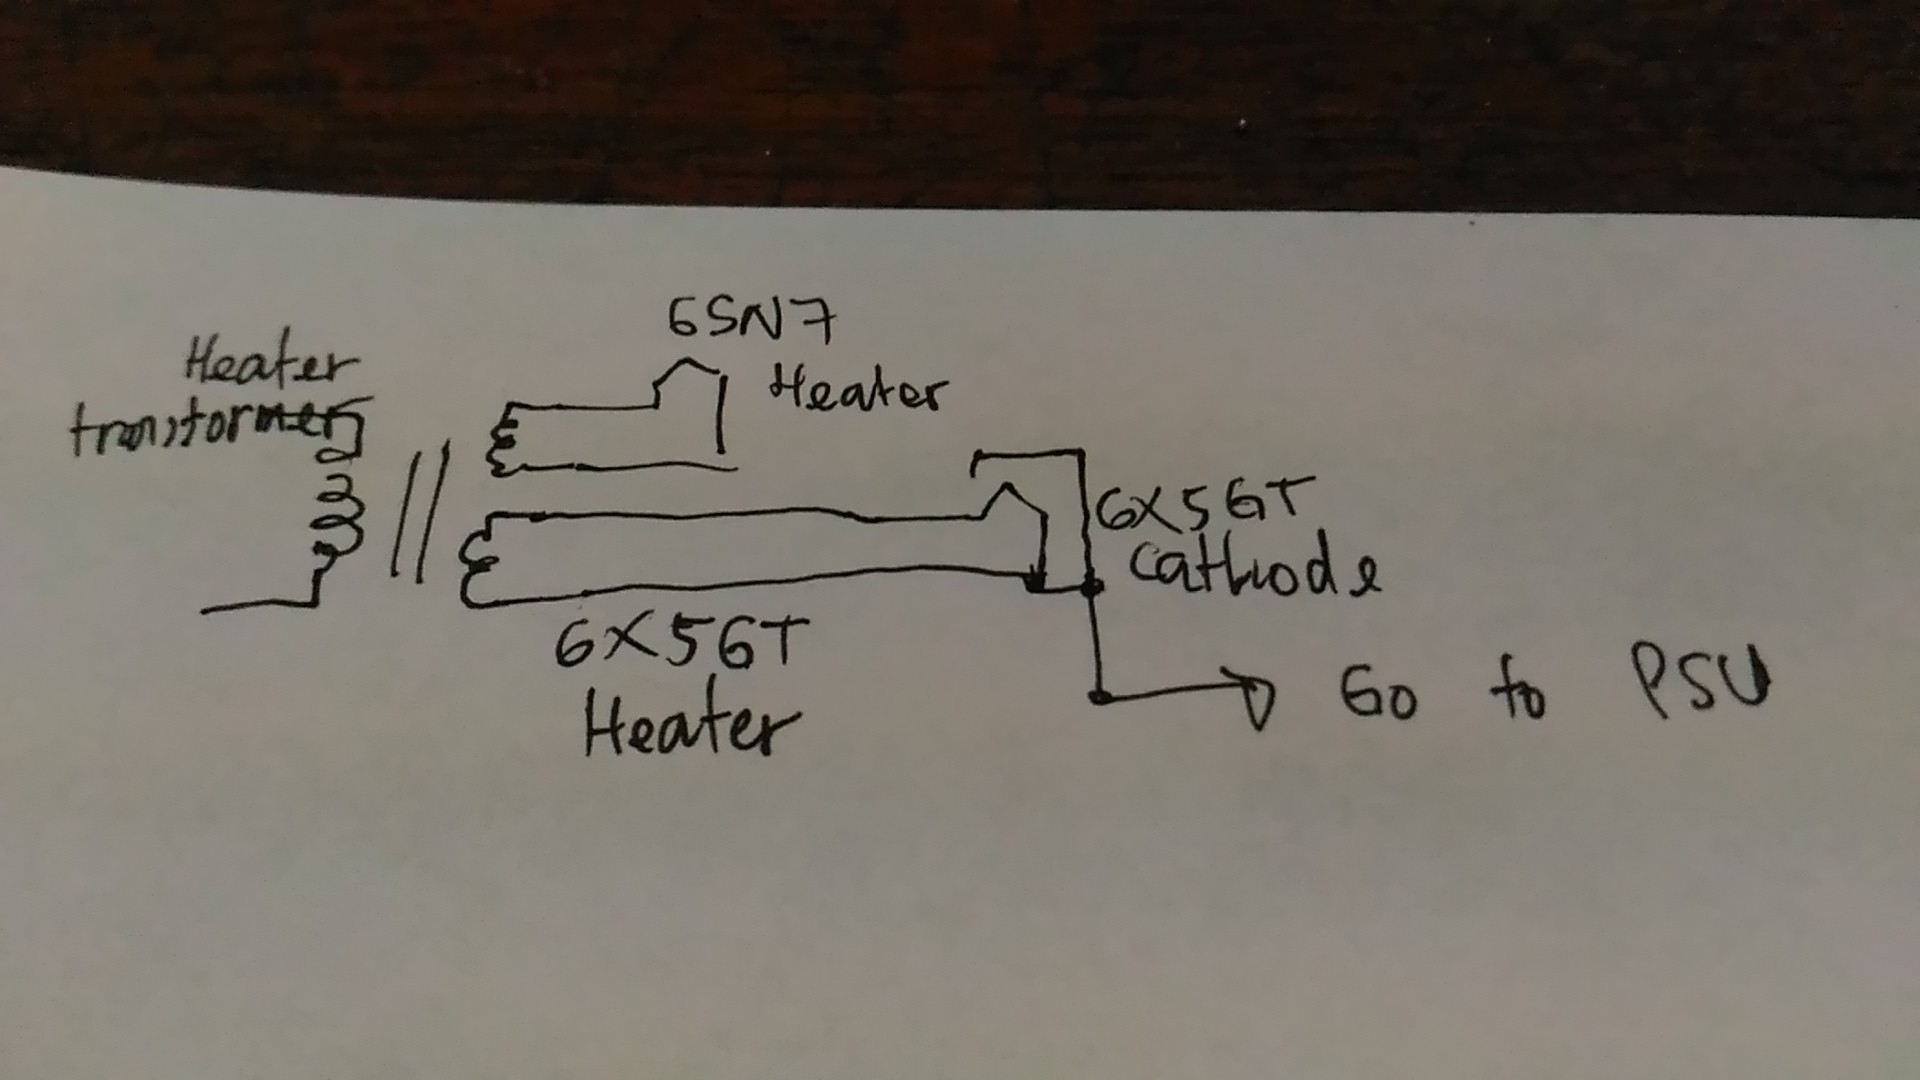 6SN7
Heater
Heater
transformer
6X5GT
cathode
6X5GT
Heater
Go to PSU